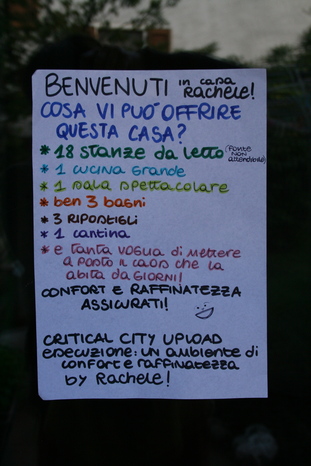 BENVENUTI in casa
RACHELE!
COSA VI PUO' OFFRIRE
QUESTA CASA?
* 18 stanze da letto (fonte non attendibile)
* 1 cucina grande
* 1 sala spettacolare
* ben 3 bagni
* 3 ripostigli
* 1 cantina
* e tanta voglia di mettere
a posto il caos che la
abita da giorni!
CONFORT E RAFFINATEZZA
ASSICURATI!
CRITICAL CITY UPLOAD
esecuzione: un ambiente di
confort e raffinatezza
by Rachele!